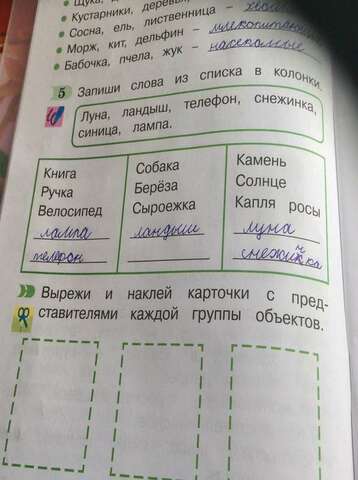 Щука,
Кустарники, деревья,
Сосна, ель, лиственница –
Морж, кит, дельфин –
Бабочка, пчела, жук – насекомые
5 Запиши слова из списка в колонки.
Луна, ландыш, телефон, снежинка,
синица, лампа.
Книга Собака Камень
Ручка Берёза Солнце
Велосипед Сыроежка Капля росы
лампа ландыш луна
телефон снежинка
Вырежи и наклей карточки с пред-
ставителями каждой группы объектов.